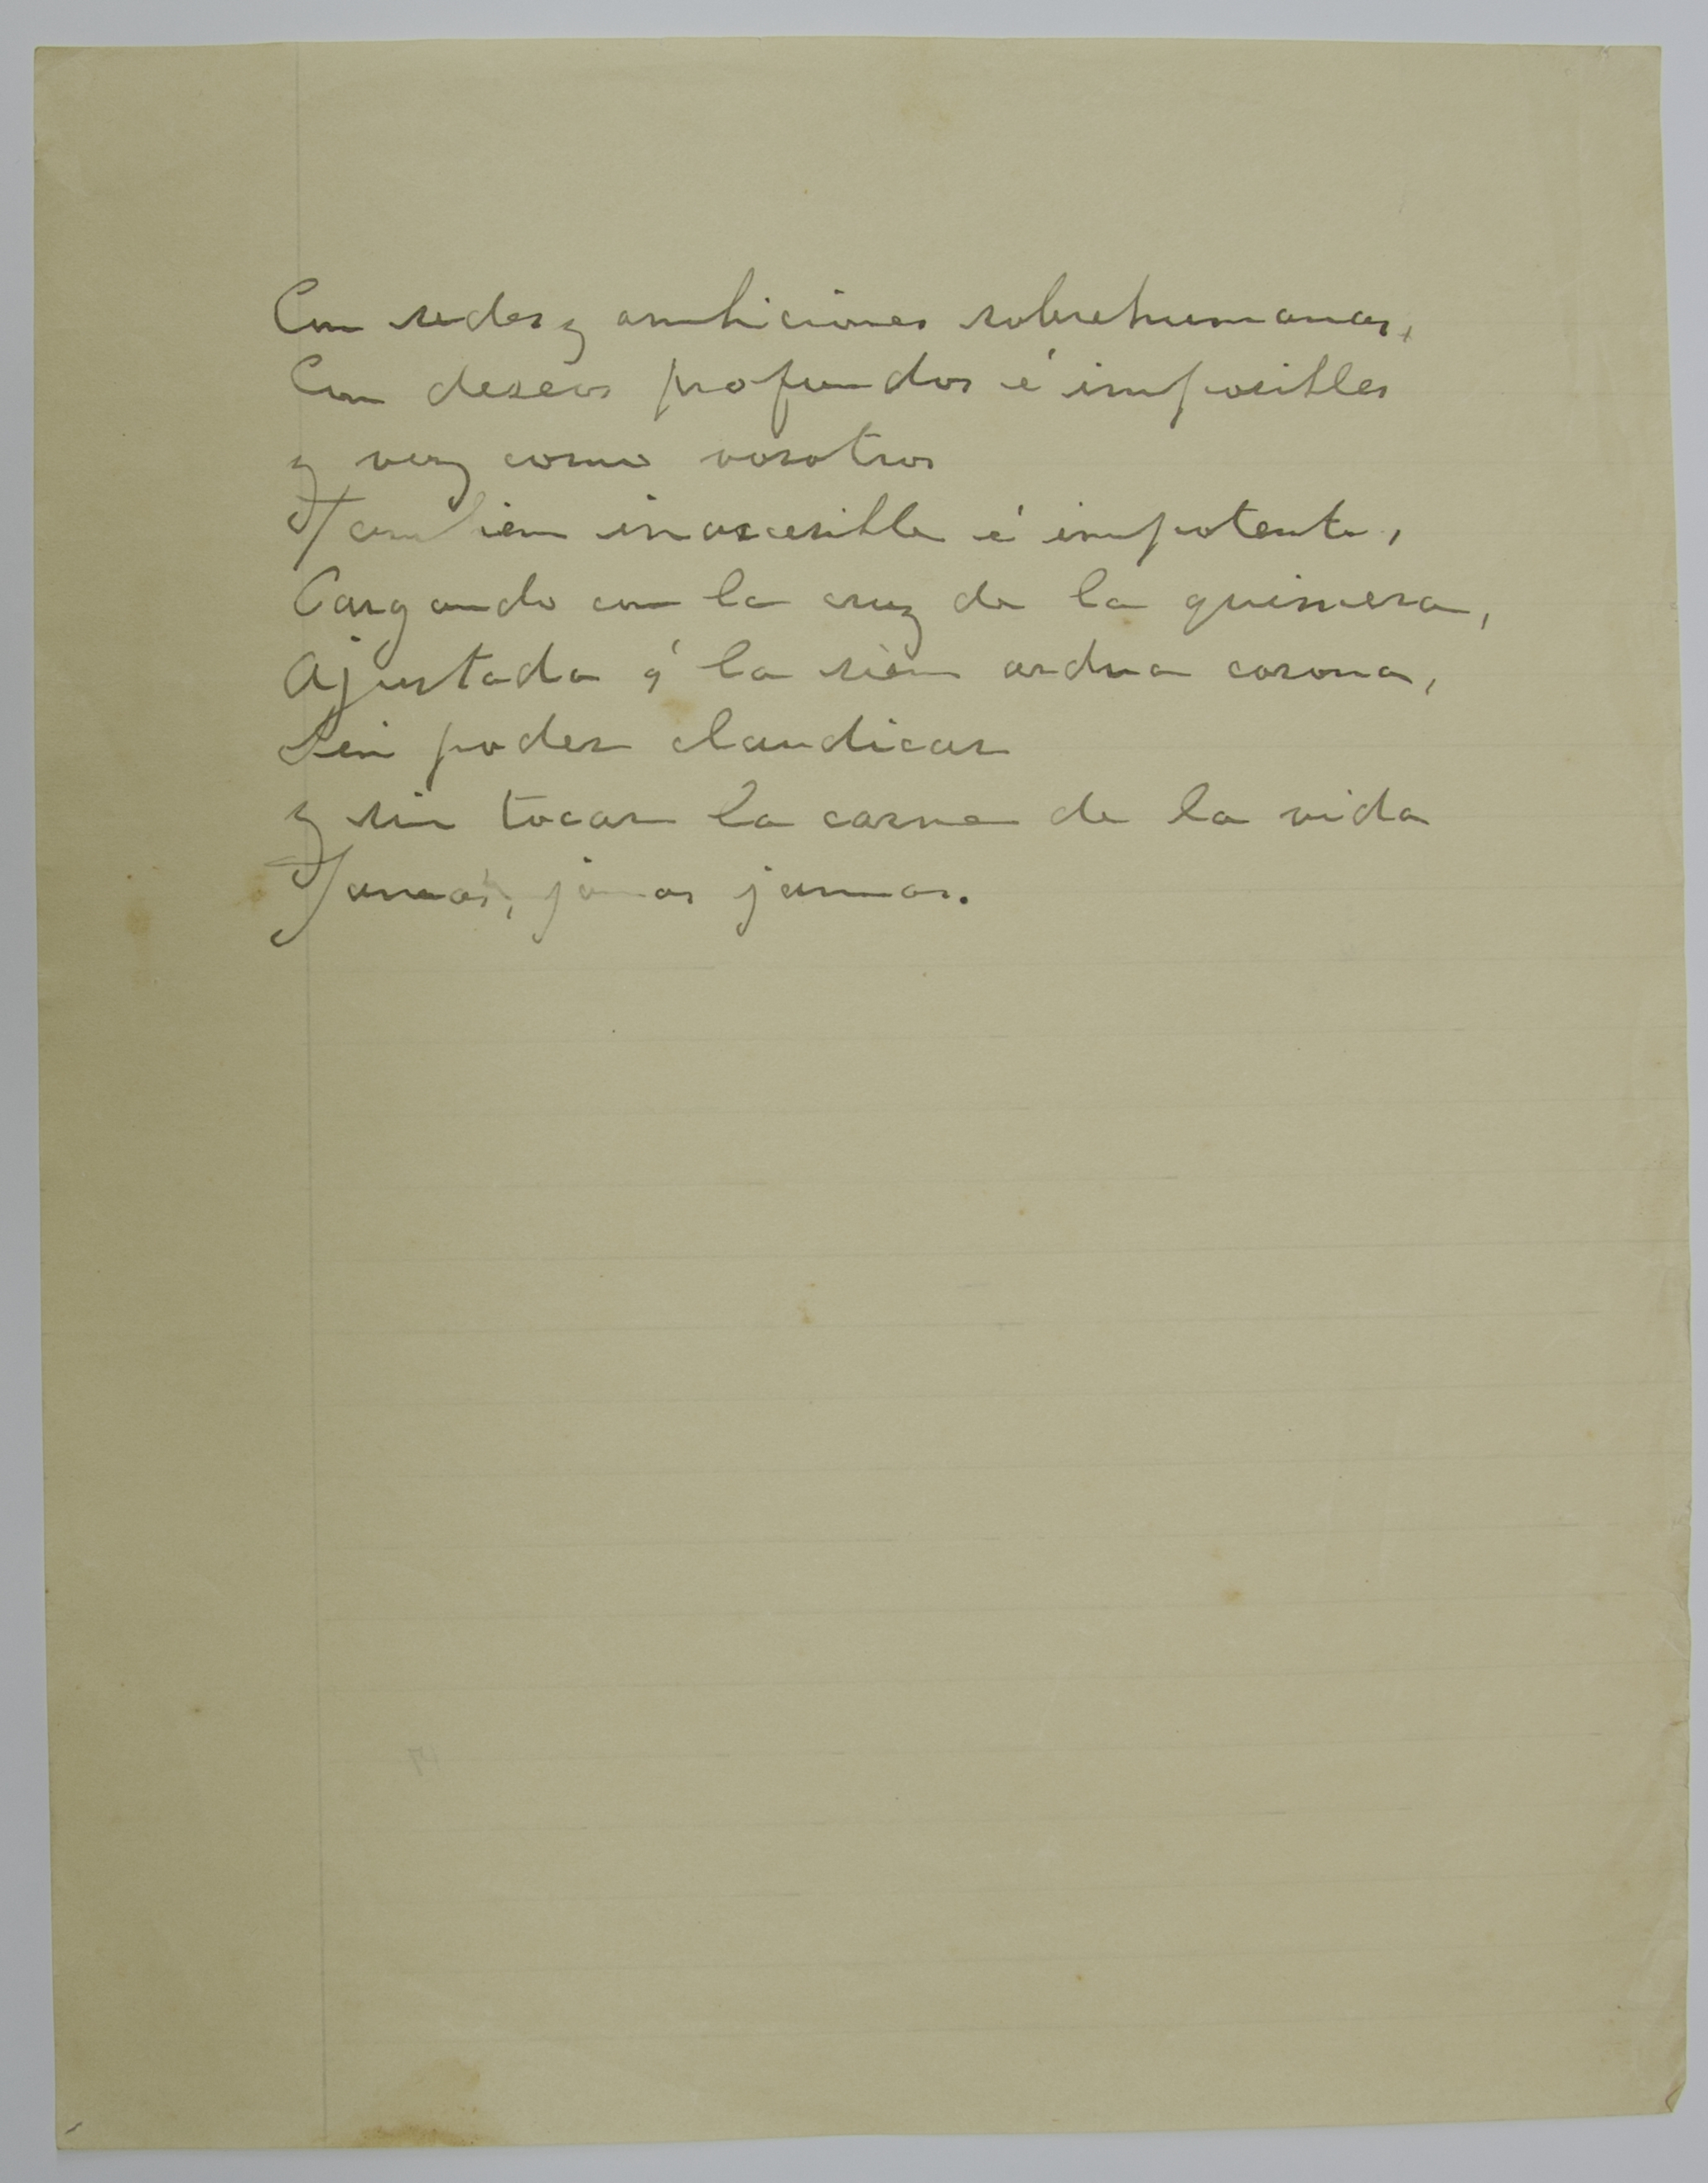 Con sedes y ambiciones sobrehumanas,
Con deseos profundos é imposibles
y voy como vosotros
Tambien inaccesible é impotente,
Cargando con la cruz de la quimera,
Ajustada á la sien ardua corona,
Sin poder claudicar
y sin tocar la carne de la vida
Jamás, jamas jamas.